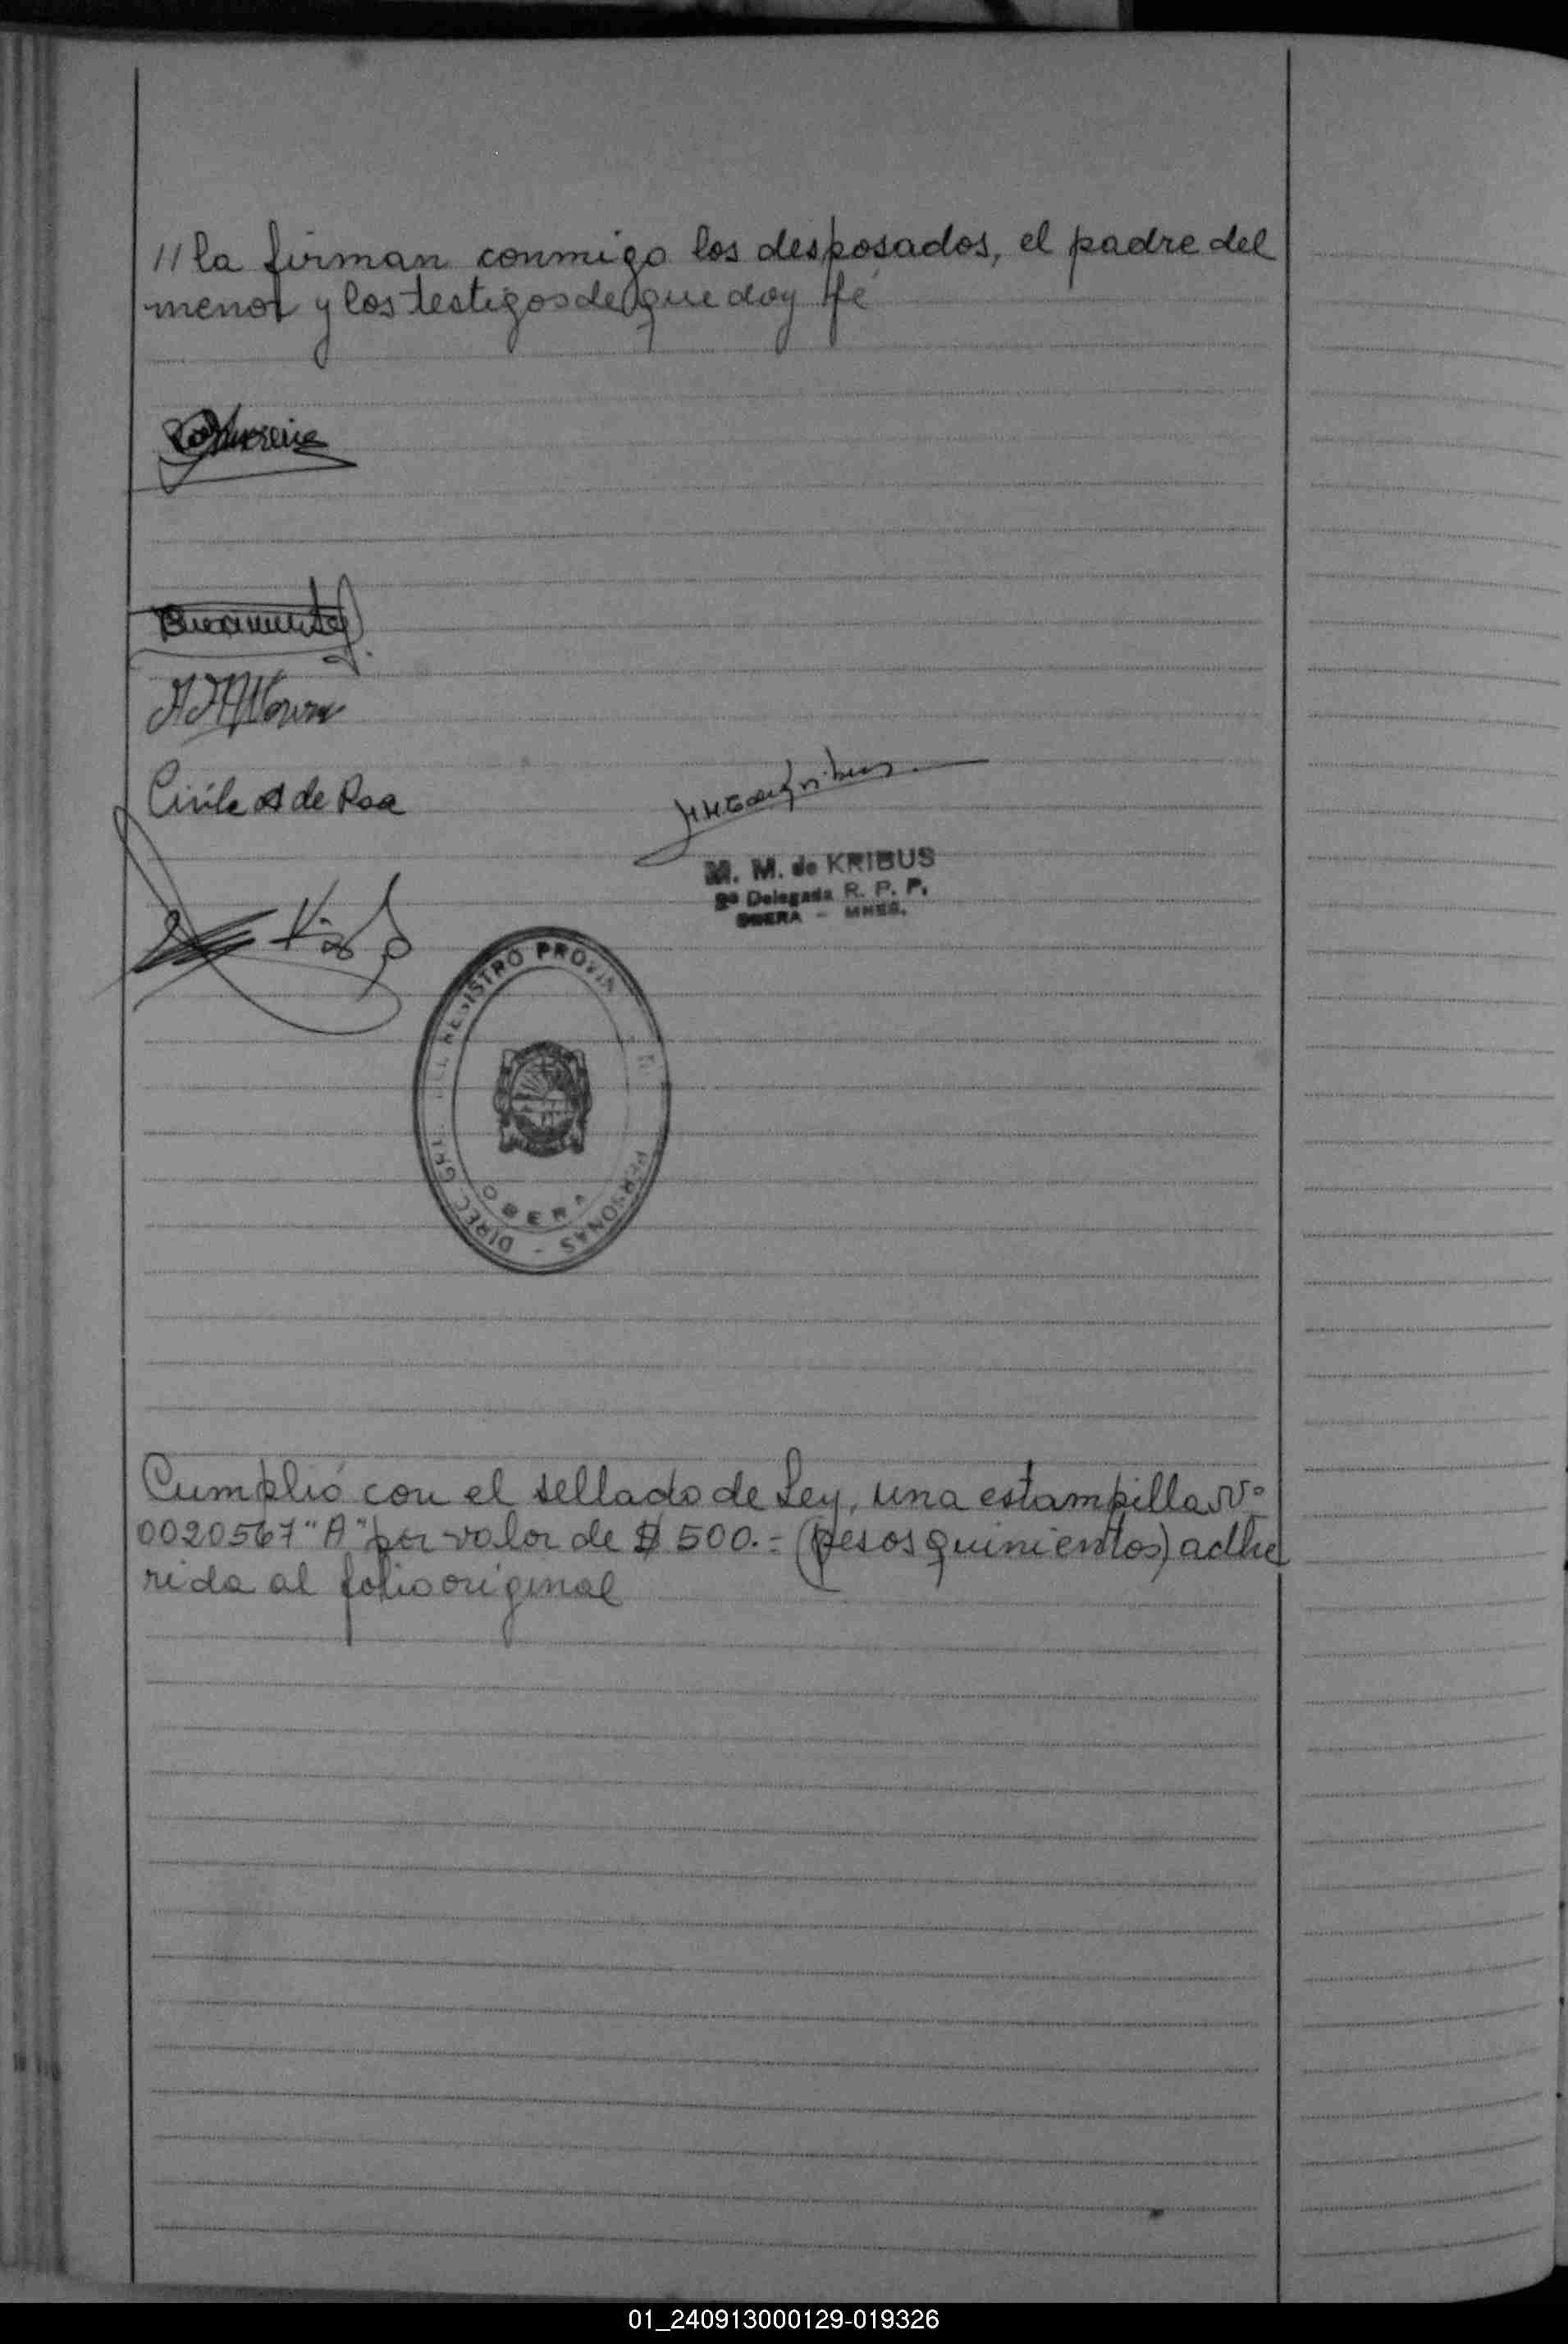 //la firman conmigo los desposados, el padre del
menor y los testigos de que doy fé
Civile A de Roa
M. M. de KRIBUS
2ª Delegada R. P. P.
OBERA - MNES.
DIREC. GRL. DEL REGISTRO PROVIN PERSONAS -
OBERA
Cumplió con el sellado de Ley, una estampilla Nº
0020567 "A" por valor de $ 500.= (pesos quinientos) adhe
rida al folio original
01_240913000129-019326